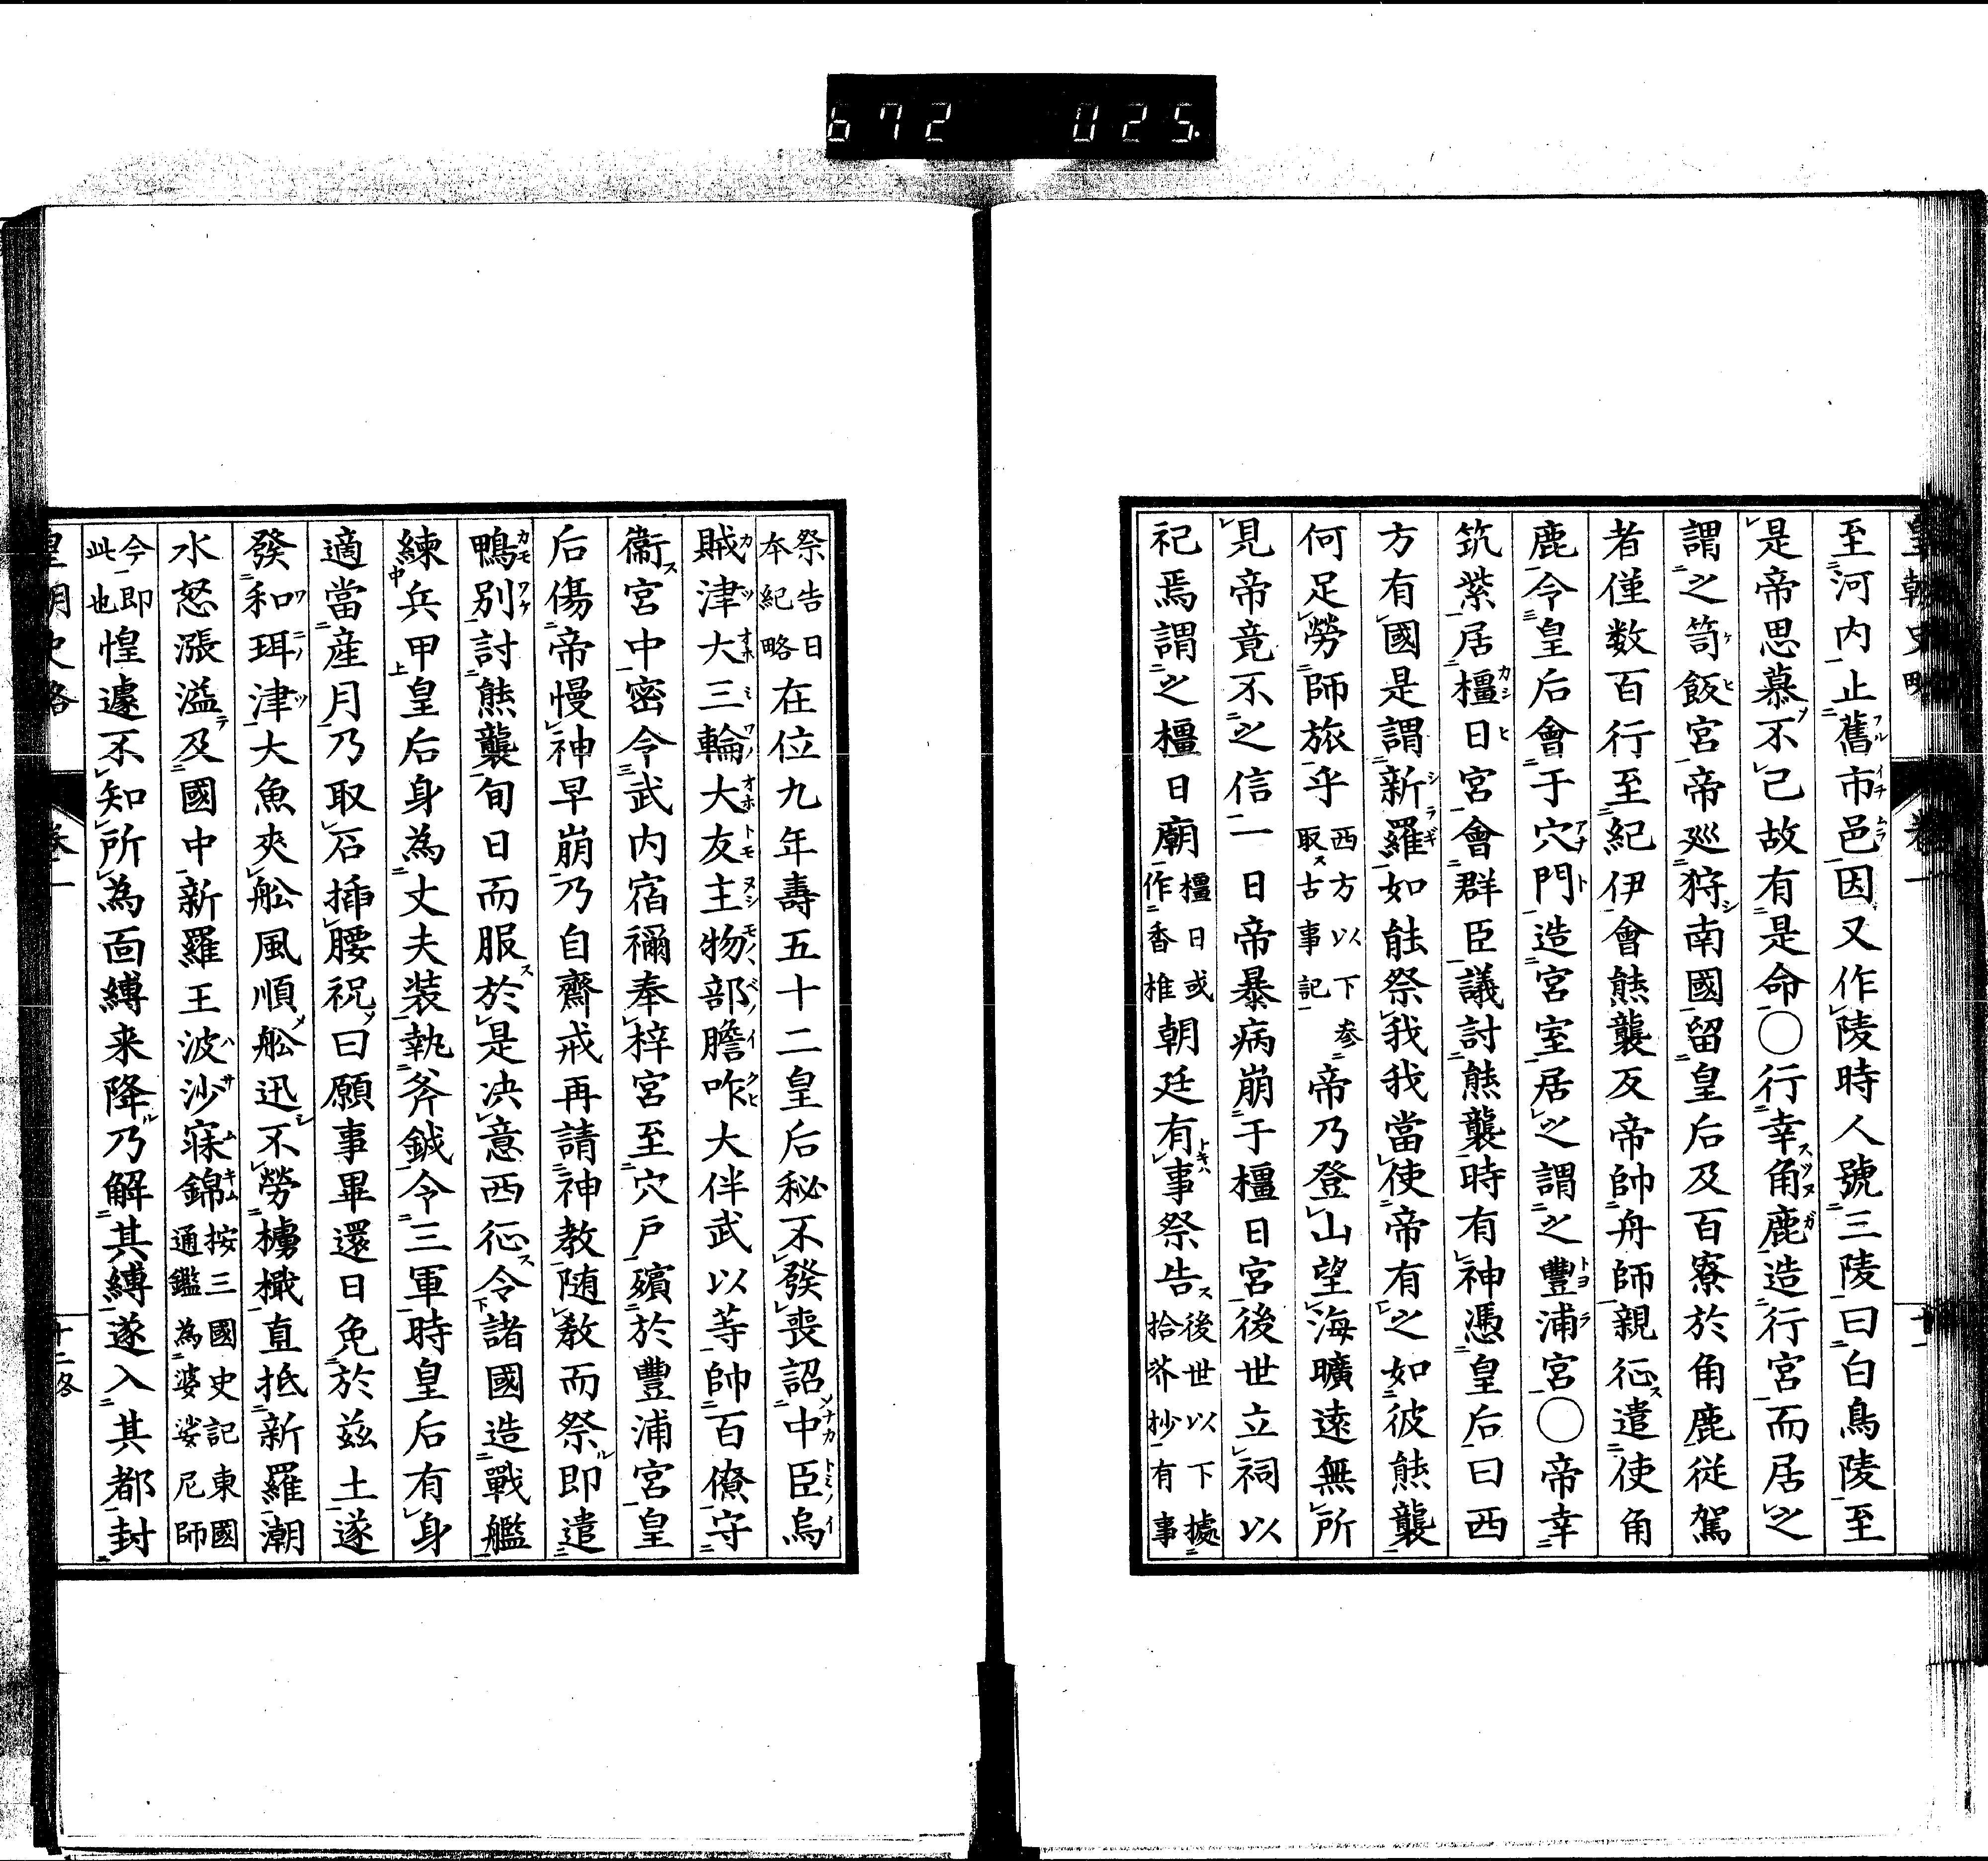 672 025
皇朝史略 卷一 十一
至河内止舊市邑因又作陵時人號三陵曰白鳥陵至
是帝思慕不已故有是命○行幸角鹿造行宮而居之
謂之笥飯宮帝廵狩南國留皇后及百寮於角鹿従駕
者僅数百行至紀伊會熊襲反帝帥舟師親征遣使角
鹿令皇后會于穴門造宮室居之謂之豐浦宮○帝幸
筑紫居橿日宮會群臣議討熊襲時有神憑皇后曰西
方有國是謂新羅如能祭我我當使帝有之如彼熊襲
何足勞師旅乎西方以下参取古事記帝乃登山望海曠遠無所
見帝竟不之信一日帝暴病崩于橿日宮後世立祠以
祀焉謂之橿日廟橿日或作香椎朝廷有事祭告後世以下據拾芥抄有事
祭告日本紀略在位九年壽五十二皇后秘不發喪詔中臣烏
賊津大三輪大友主物部膽咋大伴武以等帥百僚守
衞宮中密令武内宿禰奉梓宮至穴戸殯於豐浦宮皇
后傷帝慢神早崩乃自齋戒再請神教随教而祭即遣
鴨別討熊襲旬日而服於是决意西征令諸國造戰艦
練兵甲皇后身為丈夫装執斧鉞令三軍時皇后有身
適當産月乃取石挿腰祝曰願事畢還日免於兹土遂
發和珥津大魚夾舩風順舩迅不勞櫓檝直抵新羅潮
水怒漲溢及國中新羅王波沙寐錦按三國史記東國通鑑為婆娑尼師
今即此也惶遽不知所為面縛来降乃解其縛遂入其都封
皇朝史略 卷一 十二